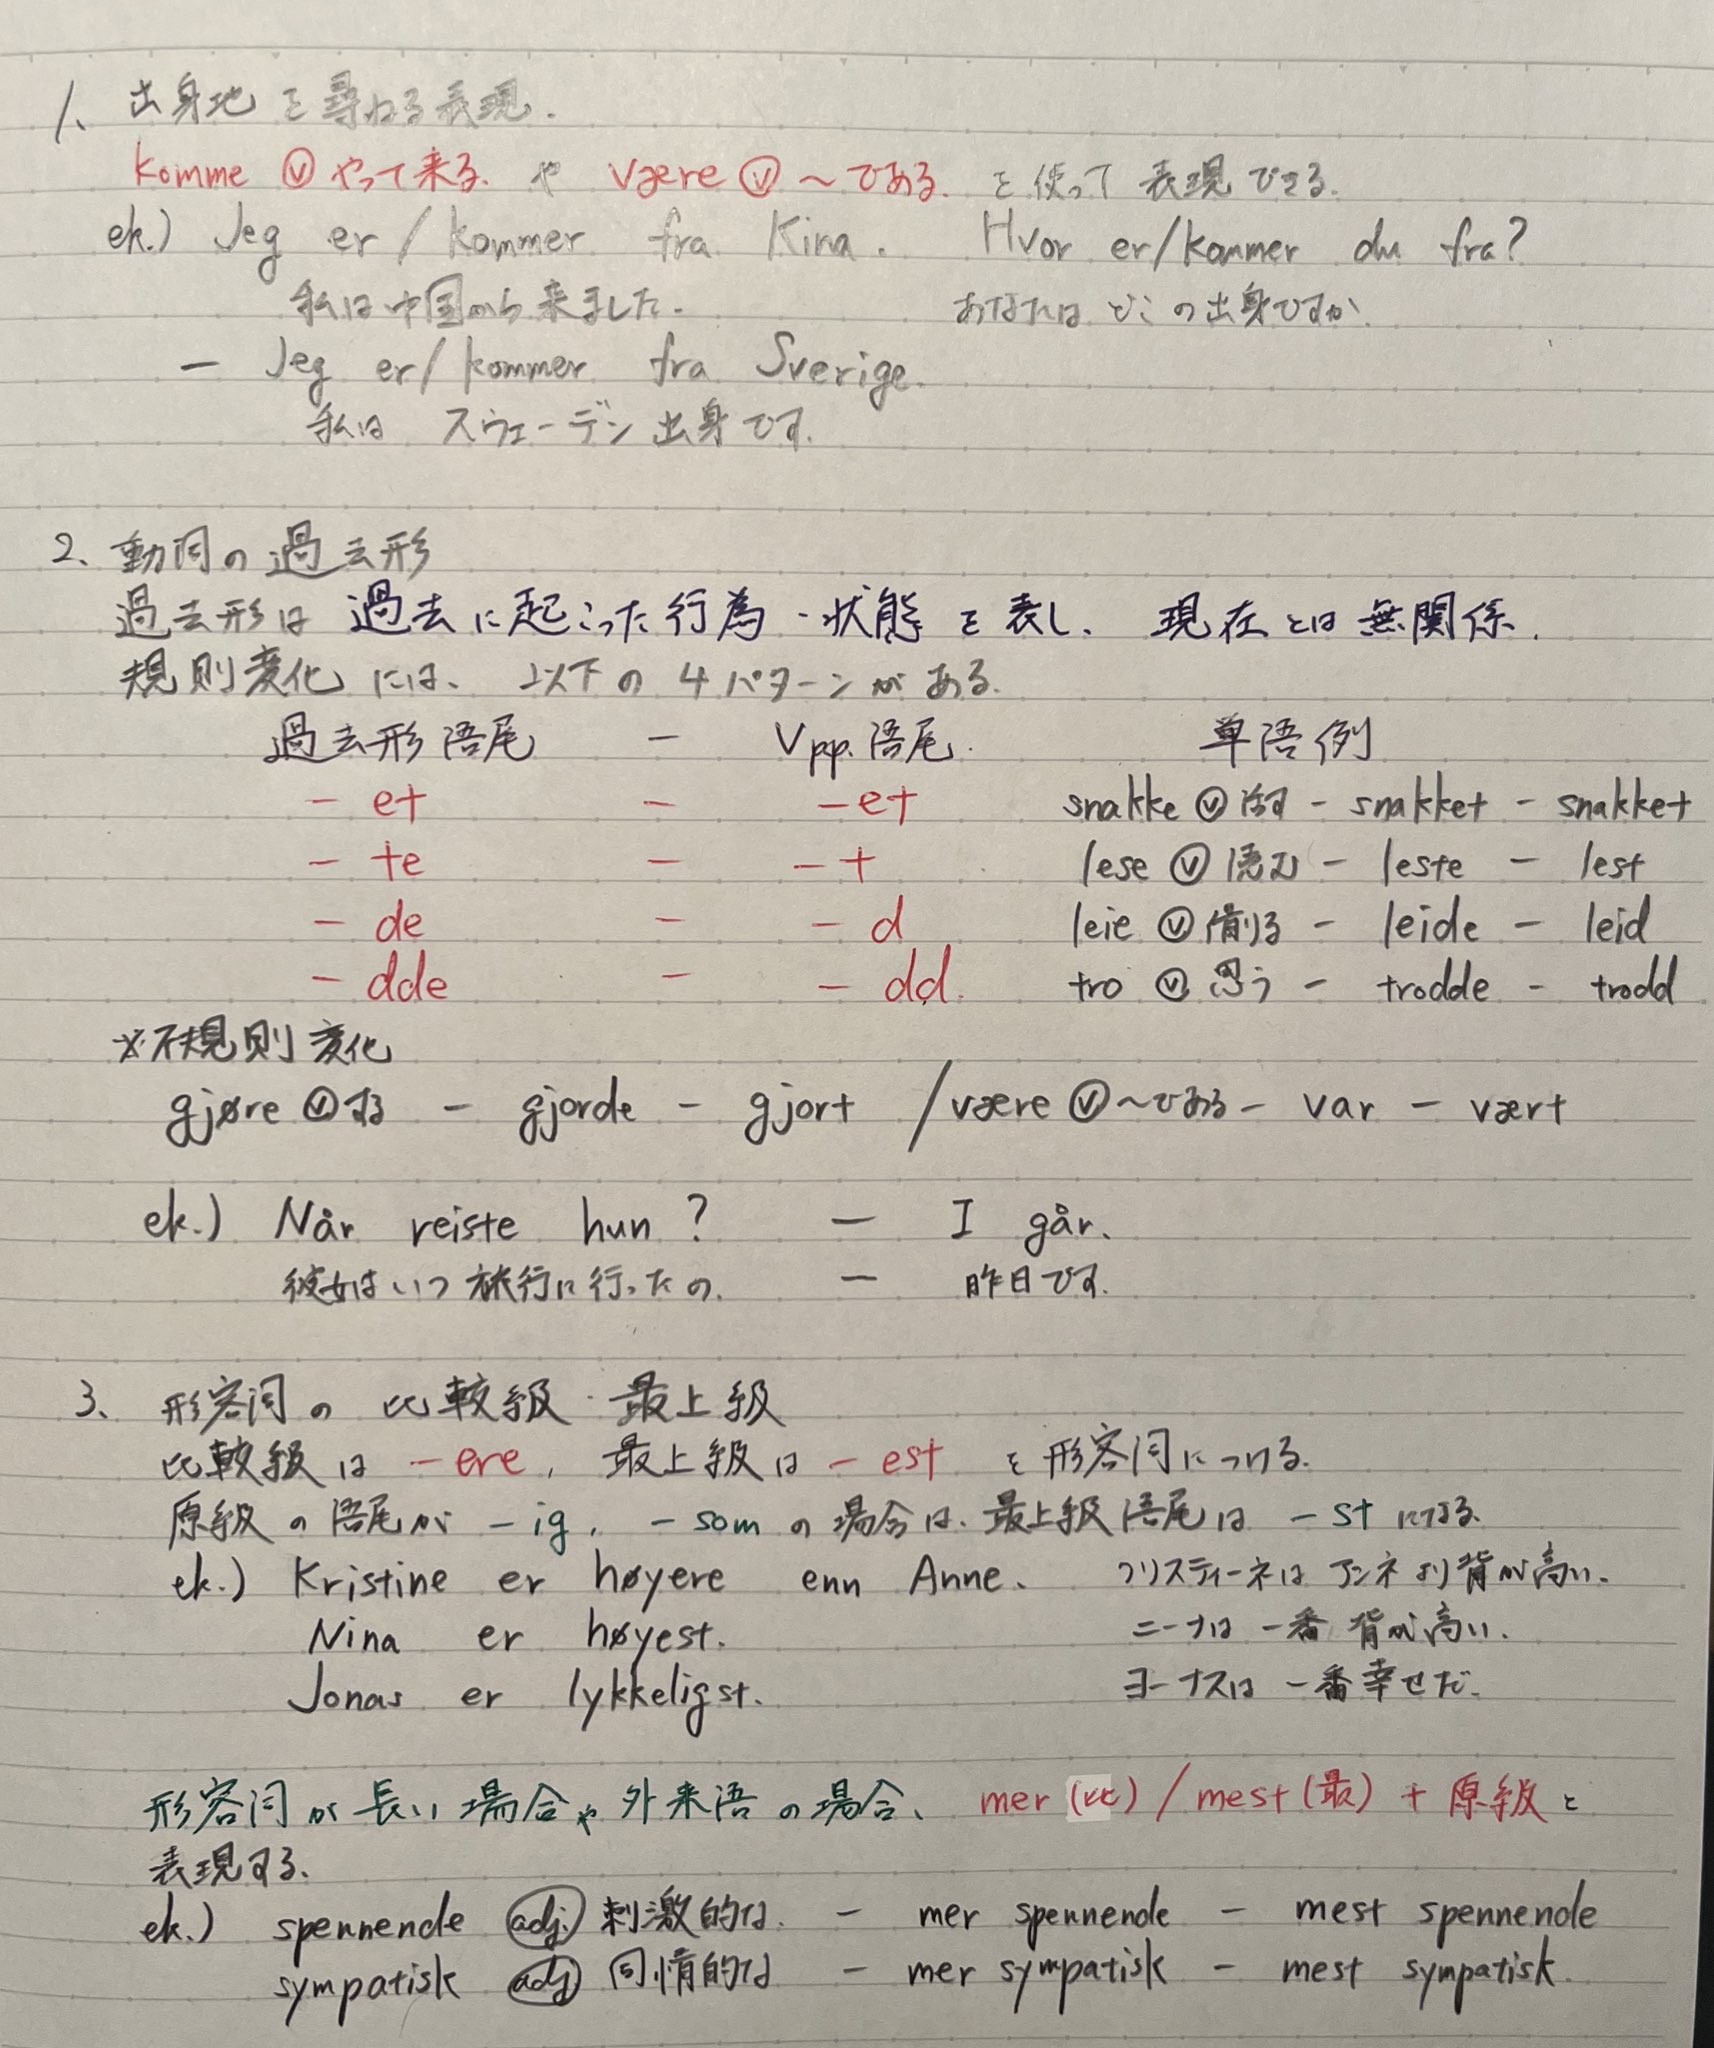 1、出身地を尋ねる表現.
komme ⓥ やって来る. や være ⓥ 〜である. を使って表現できる.
ek.) Jeg er/kommer fra Kina. Hvor er/kommer du fra?
私は中国から来ました. あなたはどこの出身ですか.
— Jeg er/kommer fra Sverige.
私は スウェーデン出身です.
2、動詞の過去形
過去形は 過去に起こった行為・状態を表し、現在とは無関係.
規則変化には、以下の4パターンがある.
過去形語尾 — Vpp.語尾. 単語例
-et — -et snakke ⓥ 話す - snakket - snakket
-te — -t lese ⓥ 読む - leste - lest
-de — -d leie ⓥ 借りる - leide - leid
-dde — -dd. tro ⓥ 思う - trodde - trodd
※不規則変化
gjøre ⓥ する - gjorde - gjort / være ⓥ 〜である - var - vært
ek.) Når reiste hun? — I går.
彼女はいつ旅行に行ったの. — 昨日です.
3、形容詞の比較級・最上級
比較級は -ere, 最上級は -est を形容詞につける.
原級の語尾が -ig, -som の場合は、最上級語尾は -st になる.
ek.) Kristine er høyere enn Anne. クリスティーネはアンネより背が高い.
Nina er høyest. ニーナは一番背が高い.
Jonas er lykkeligst. ヨーナスは一番幸せだ.
形容詞が長い場合や外来語の場合、mer (比) / mest (最) + 原級と
表現する.
ek.) spennende adj. 刺激的な. - mer spennende - mest spennende
sympatisk adj 同情的な - mer sympatisk - mest sympatisk.